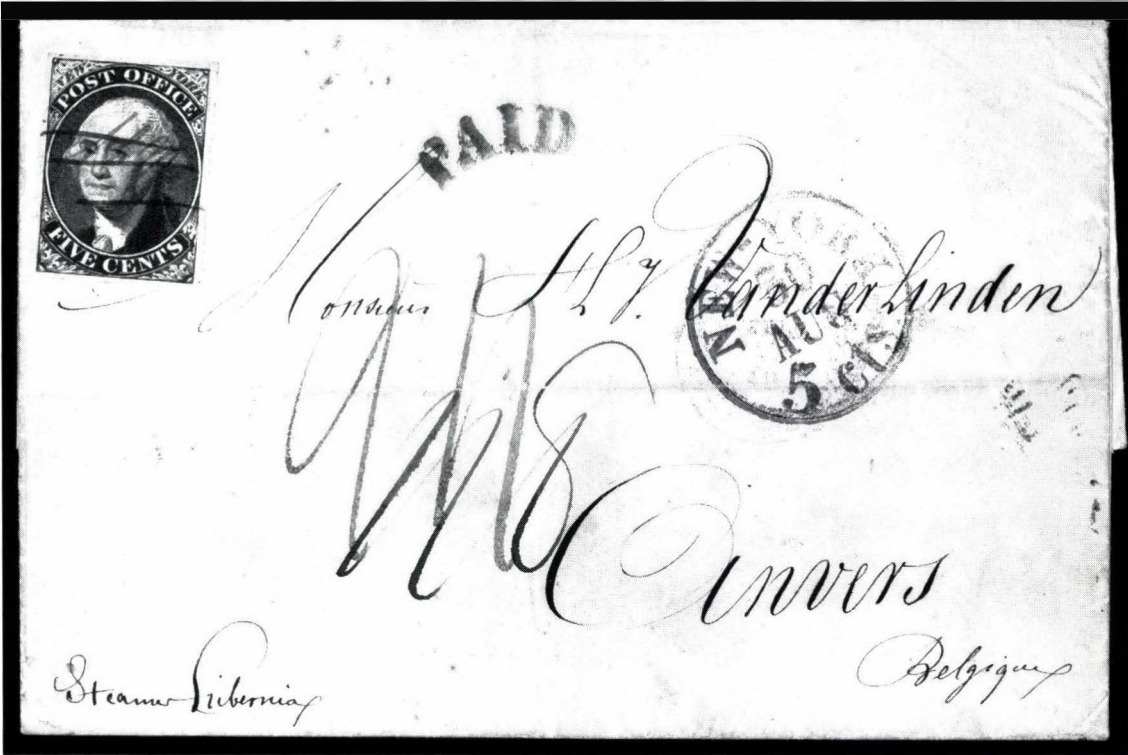 NEW YORK
POST OFFICE
FIVE CENTS
PAID
NEW YORK
AUG
5 cts
Monsieur L. J. Vanderlinden
Anvers
Belgique
Steamer Hibernia